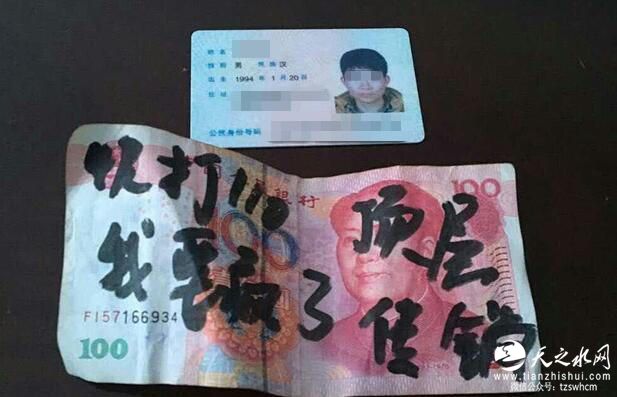 姓名
性别 男 民族 汉
出生 1994 年 1 月 20 日
住址
公民身份号码
快打110 顶层
我要疯了 传销
银行
100
100
FI57166934
100
天之水网
www.tianzhishui.com
微信公众号：tzswhcm